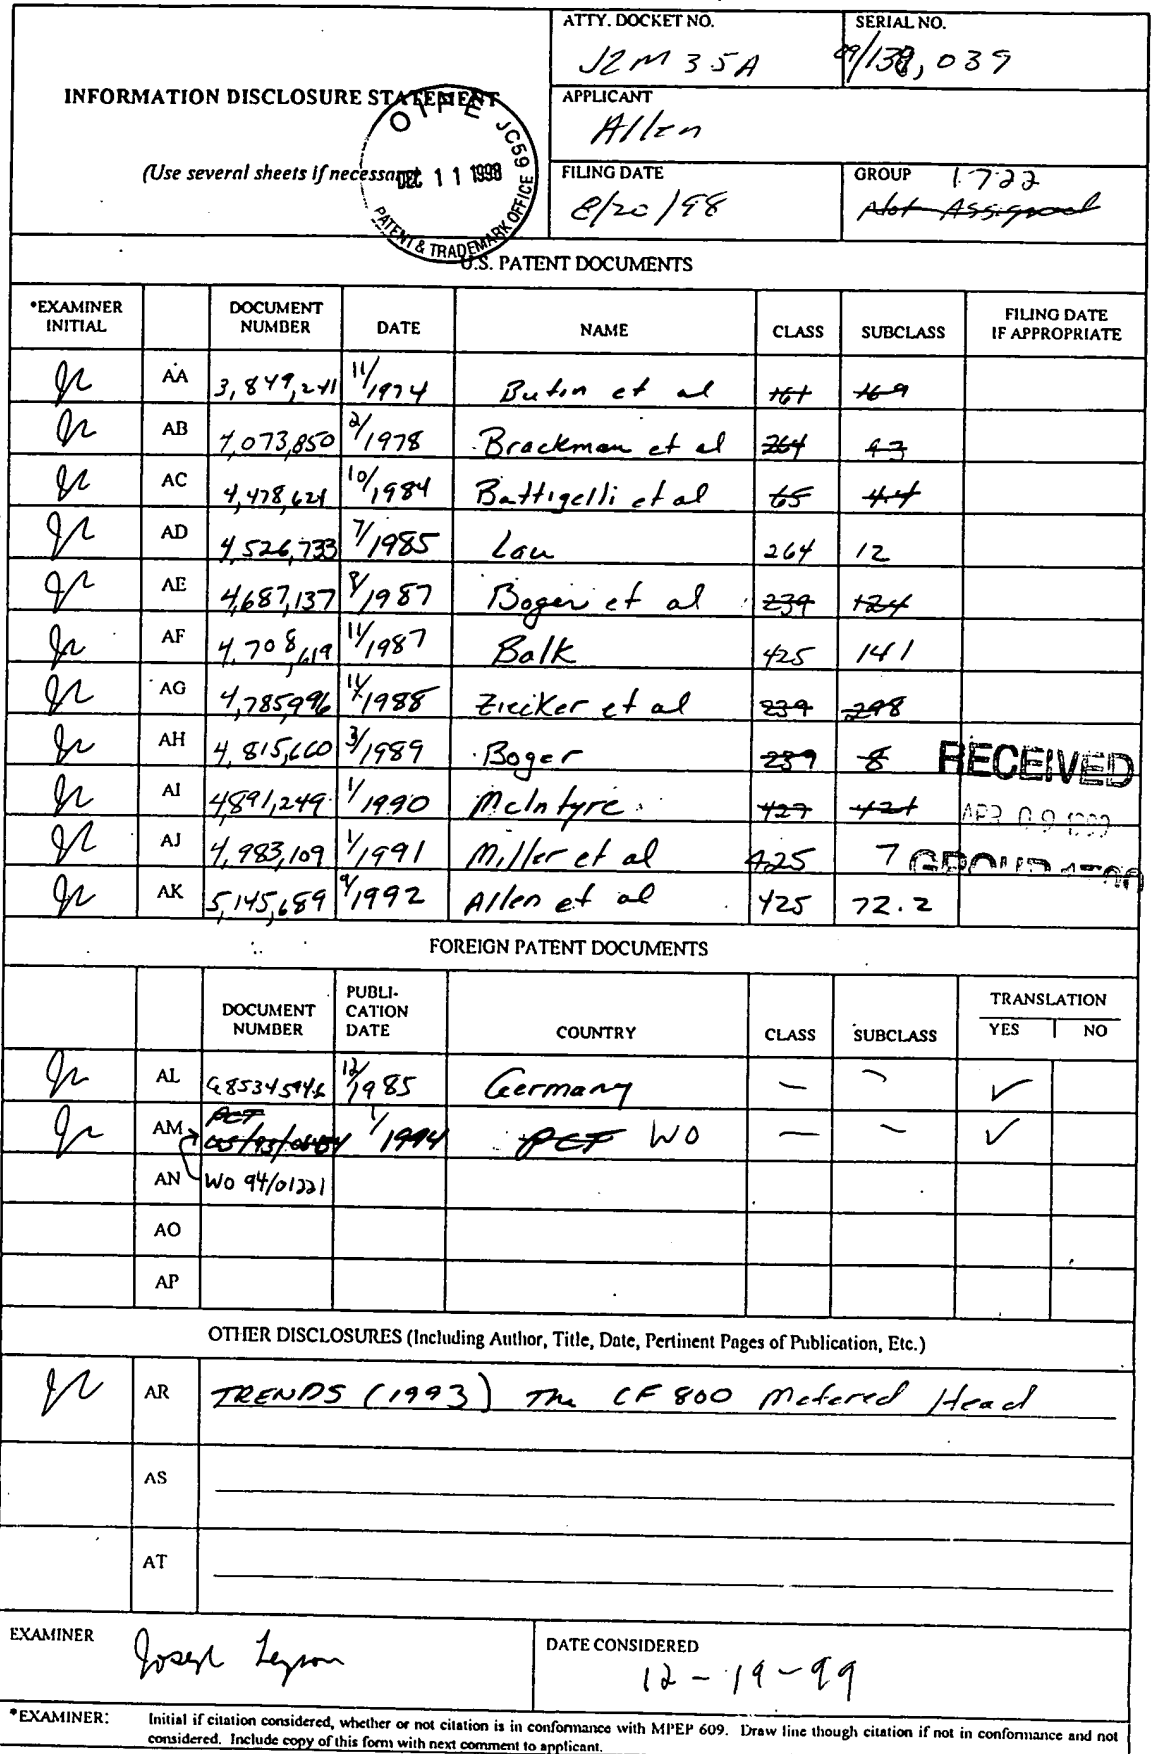 ATTY. DOCKET NO.
J2M 35A
SERIAL NO.
09/138,039
INFORMATION DISCLOSURE STATEMENT
(Use several sheets if necessary)
OIPE JC59
DEC 11 1998
PATENT & TRADEMARK OFFICE
APPLICANT
Allen
FILING DATE
8/20/98
GROUP 1722
Not Assigned
U.S. PATENT DOCUMENTS
*EXAMINER INITIAL DOCUMENT NUMBER DATE NAME CLASS SUBCLASS FILING DATE IF APPROPRIATE
AA 3,849,241 11/1974 Butin et al 161 169
AB 4,073,850 2/1978 Brackman et al 264 93
AC 4,478,624 10/1984 Battigelli et al 65 4.4
AD 4,526,733 7/1985 Lau 264 12
AE 4,687,137 8/1987 Boger et al 239 124
AF 4,708,619 11/1987 Balk 425 141
AG 4,785,996 11/1988 Ziecker et al 239 298
AH 4,815,660 3/1989 Boger 239 8
AI 4,891,249 1/1990 McIntyre 427 421
AJ 4,983,109 1/1991 Miller et al 425 7
AK 5,145,689 9/1992 Allen et al 425 72.2
RECEIVED
APR 09 1999
GROUP 1700
FOREIGN PATENT DOCUMENTS
DOCUMENT NUMBER PUBLI-CATION DATE COUNTRY CLASS SUBCLASS TRANSLATION YES NO
AL G8534594.6 12/1985 Germany — — ✓
AM PCT 1/1994 PCT WO — — ✓
AN WO 94/01221
AO
AP
OTHER DISCLOSURES (Including Author, Title, Date, Pertinent Pages of Publication, Etc.)
AR TRENDS (1993) The CF 800 Metered Head
AS
AT
EXAMINER Joseph Leyson
DATE CONSIDERED
12-19-99
*EXAMINER: Initial if citation considered, whether or not citation is in conformance with MPEP 609. Draw line though citation if not in conformance and not
considered. Include copy of this form with next comment to applicant.